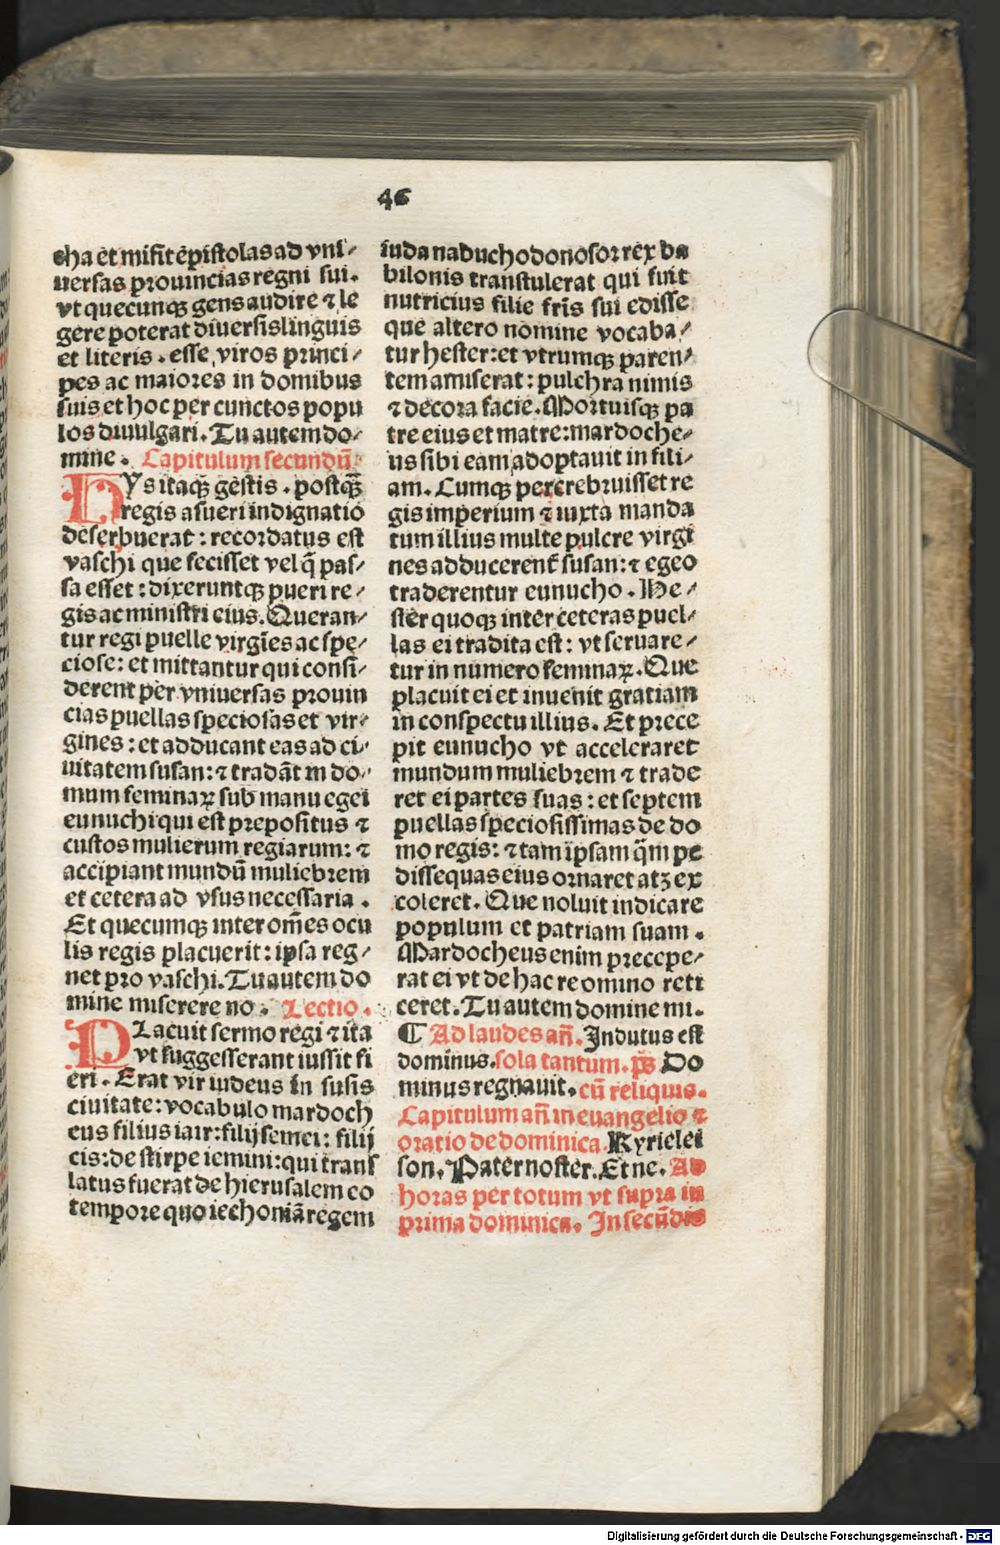 46
cha et misit ep̄istolas ad vni⸗
uersas prouincias regni sui.
vt quecunqꝫ gens audire ⁊ le
gere poterat diuersis linguis
et literis . esse viros princi⸗
pes ac maiores in domibus
suis et hoc per cunctos popu
los diuulgari. Tu autem do⸗
mine . Capitulum secundū.
HYs itaqꝫ gestis . postqꝫ̄
regis asueri indignatio
deserbuerat : recordatus est
vaschi que fecisset vel q̄ pas⸗
sa esset : dixeruntqꝫ pueri re⸗
gis ac ministri eius. Queran⸗
tur regi puelle virgīes ac spe⸗
ciose: et mittantur qui consi⸗
derent per vniuersas prouin
cias puellas speciosas et vir⸗
gines : et adducant eas ad ci⸗
uitatem susan: ⁊ tradāt in do⸗
mum feminaꝝ sub manu egei
eunuchi qui est prepositus ⁊
custos mulierum regiarum: ⁊
accipiant mundū muliebrem
et cetera ad vsus necessaria .
Et quecumqꝫ inter om̄es ocu
lis regis placuerit : ipsa reg⸗
net pro vaschi. Tu autem do
mine miserere no . Lectio .
PLacuit sermo regi ⁊ ita
vt suggesserant iussit fi
eri . Erat vir iudeus in susis
ciuitate: vocabulo mardoch
eus filius iair: filij semei: filij
cis: de stirpe iemini: qui trans
latus fuerat de hierusalem eo
tempore quo iechoniā regem
iuda nabuchodonosor rex ba
bilonis transtulerat qui fuit
nutricius filie fr̄is sui edisse
que altero nomine vocaba⸗
tur hester: et vtrumqꝫ paren⸗
tem amiserat : pulchra nimis
⁊ decora facie. Mortuisqꝫ pa
tre eius et matre: mardoche⸗
us sibi eam adoptauit in fili⸗
am. Cumqꝫ percrebruisset re
gis imperium ⁊ iuxta manda
tum illius multe pulcre virgi
nes adducerent̄ susan: ⁊ egeo
traderentur eunucho . He⸗
ster quoqꝫ inter ceteras puel⸗
las ei tradita est : vt seruare⸗
tur in numero feminaꝝ. Que
placuit ei et inuenit gratiam
in conspectu illius. Et prece
pit eunucho vt acceleraret
mundum muliebrem ⁊ trade
ret ei partes suas : et septem
puellas speciosissimas de do
mo regis: ⁊ tam ipsam q̄m pe
dissequas eius ornaret atꝫ ex
coleret. Que noluit indicare
populum et patriam suam .
Mardocheus enim precepe⸗
rat ei vt de hac re omino reti
ceret. Tu autem domine mi.
¶ Ad laudes an̄. Indutus est
dominus. sola tantum. ps̄ Do
minus regnauit. cū reliquis.
Capitulum an̄ in euangelio ⁊
oratio de dominica. Kyrielei
son. Pater noster. Et ne. Ad
horas per totum vt supra in
prima dominica. In secūdis
Digitalisierung gefördert durch die Deutsche Forschungsgemeinschaft - DFG